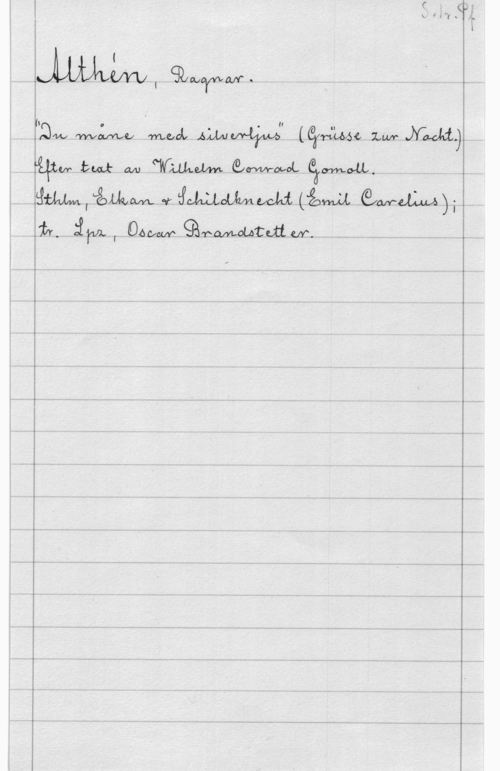 S. o. 1v. Pf
Althén, Ragnar.
"Du måne med silverljus" (Grüsse zur Nacht.)
Efter text av Wilhelm Conrad Gomoll.
Sthlm, Elkan & Schildknecht (Emil Carelius);
tr. Lpz, Oscar Brandstetter.